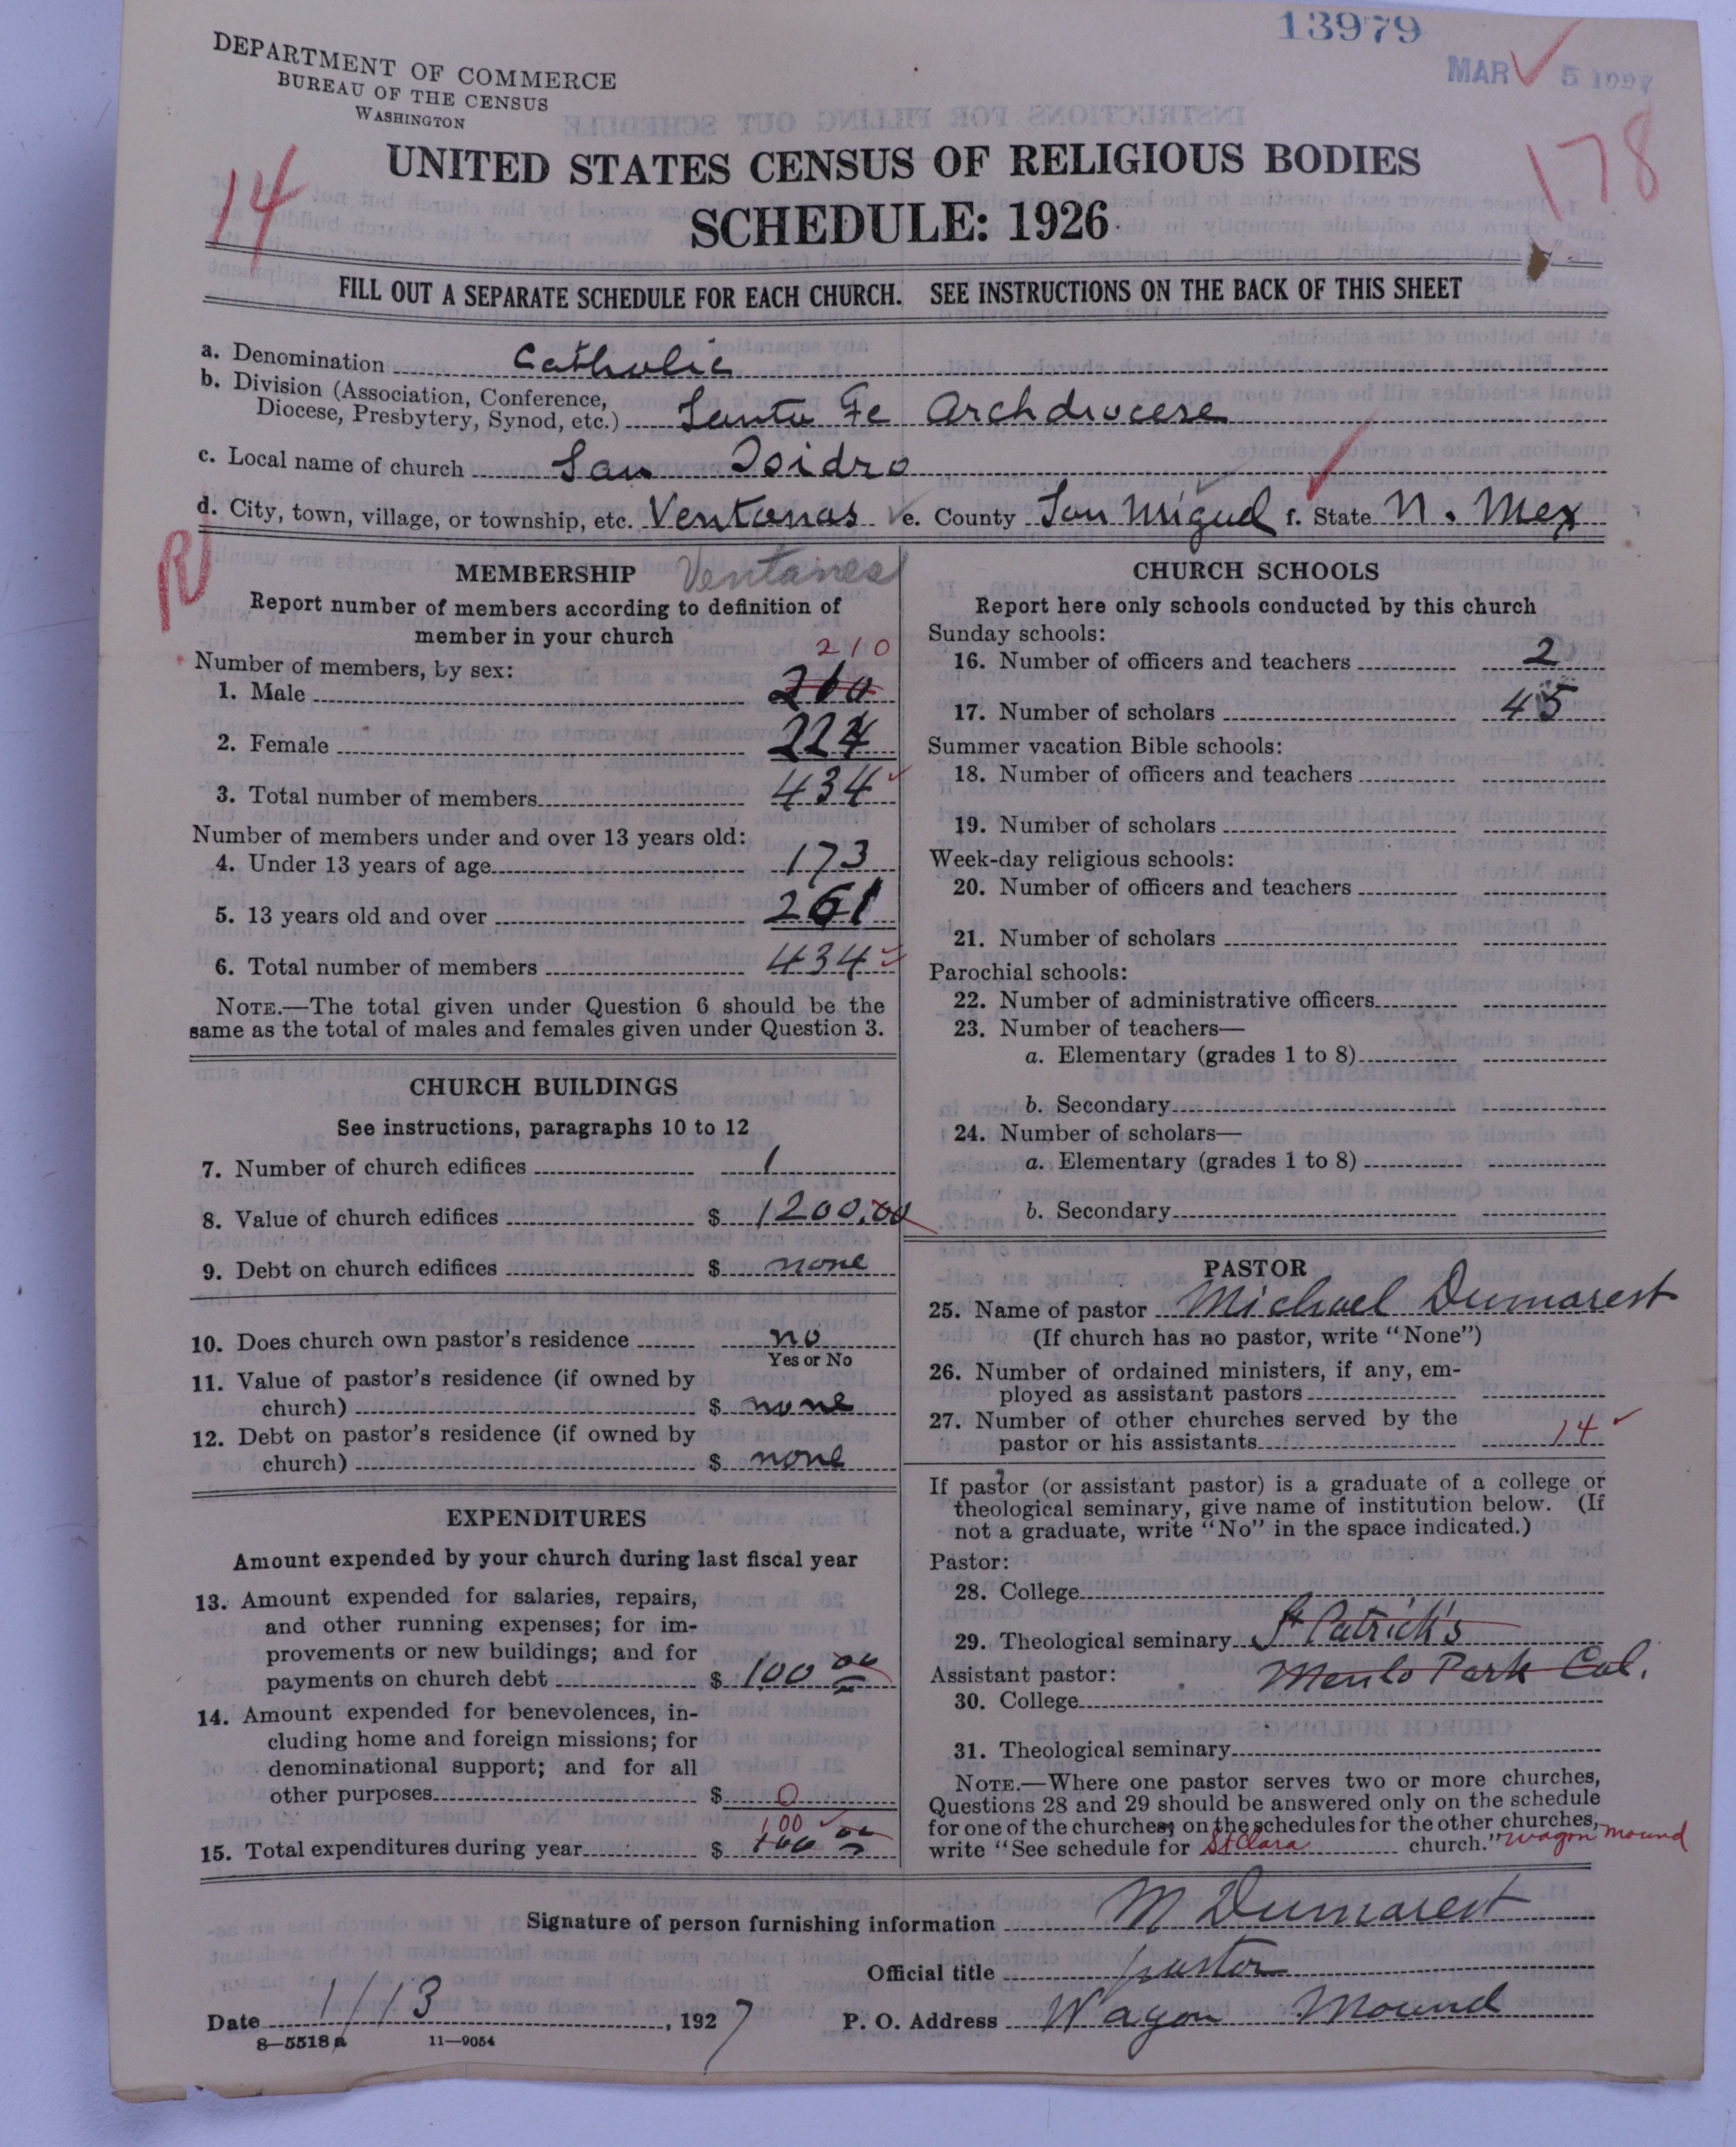 13979
MAR 5 1927
DEPARTMENT OF COMMERCE
BUREAU OF THE CENSUS
WASHINGTON
14
178
UNITED STATES CENSUS OF RELIGIOUS BODIES
SCHEDULE: 1926
FILL OUT A SEPARATE SCHEDULE FOR EACH CHURCH. SEE INSTRUCTIONS ON THE BACK OF THIS SHEET
a. Denomination Catholic
b. Division (Association, Conference,
Diocese, Presbytery, Synod, etc.) Santa Fe Archdiocese
c. Local name of church San Isidro
d. City, town, village, or township, etc. Ventanas e. County San Miguel f. State N. Mex
R
MEMBERSHIP Ventanes
Report number of members according to definition of
member in your church
Number of members, by sex:
210
1. Male 210
2. Female 224
3. Total number of members 434
Number of members under and over 13 years old:
4. Under 13 years of age 173
5. 13 years old and over 261
6. Total number of members 434
NOTE.—The total given under Question 6 should be the
same as the total of males and females given under Question 3.
CHURCH BUILDINGS
See instructions, paragraphs 10 to 12
7. Number of church edifices 1
8. Value of church edifices $ 1200.00
9. Debt on church edifices $ none
10. Does church own pastor's residence no
Yes or No
11. Value of pastor's residence (if owned by
church) $ none
12. Debt on pastor's residence (if owned by
church) $ none
EXPENDITURES
Amount expended by your church during last fiscal year
13. Amount expended for salaries, repairs,
and other running expenses; for im-
provements or new buildings; and for
payments on church debt $ 100 00
14. Amount expended for benevolences, in-
cluding home and foreign missions; for
denominational support; and for all
other purposes $ 0
100
15. Total expenditures during year $ 100 00
CHURCH SCHOOLS
Report here only schools conducted by this church
Sunday schools:
16. Number of officers and teachers 2
17. Number of scholars 45
Summer vacation Bible schools:
18. Number of officers and teachers
19. Number of scholars
Week-day religious schools:
20. Number of officers and teachers
21. Number of scholars
Parochial schools:
22. Number of administrative officers
23. Number of teachers—
a. Elementary (grades 1 to 8)
b. Secondary
24. Number of scholars—
a. Elementary (grades 1 to 8)
b. Secondary
PASTOR
25. Name of pastor Michael Dumarest
(If church has no pastor, write "None")
26. Number of ordained ministers, if any, em-
ployed as assistant pastors
27. Number of other churches served by the
pastor or his assistants 14
If pastor (or assistant pastor) is a graduate of a college or
theological seminary, give name of institution below. (If
not a graduate, write "No" in the space indicated.)
Pastor:
28. College
29. Theological seminary St Patrick's
Assistant pastor: Menlo Park Cal.
30. College
31. Theological seminary
NOTE.—Where one pastor serves two or more churches,
Questions 28 and 29 should be answered only on the schedule
for one of the churches; on the schedules for the other churches,
write "See schedule for St Clara church." Wagon Mound
Signature of person furnishing information M Dumarest
Official title pastor
Date 1/13, 1927 P. O. Address Wagon Mound
8—5518 a 11—9054